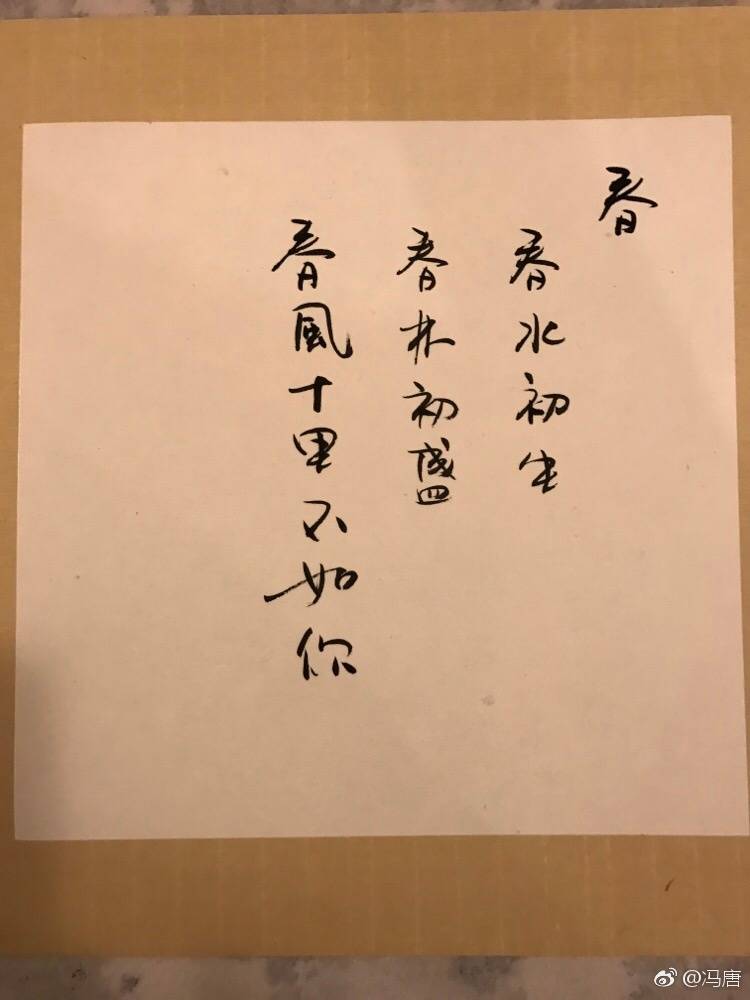 春
春水初生
春林初盛
春風十里不如你
@冯唐